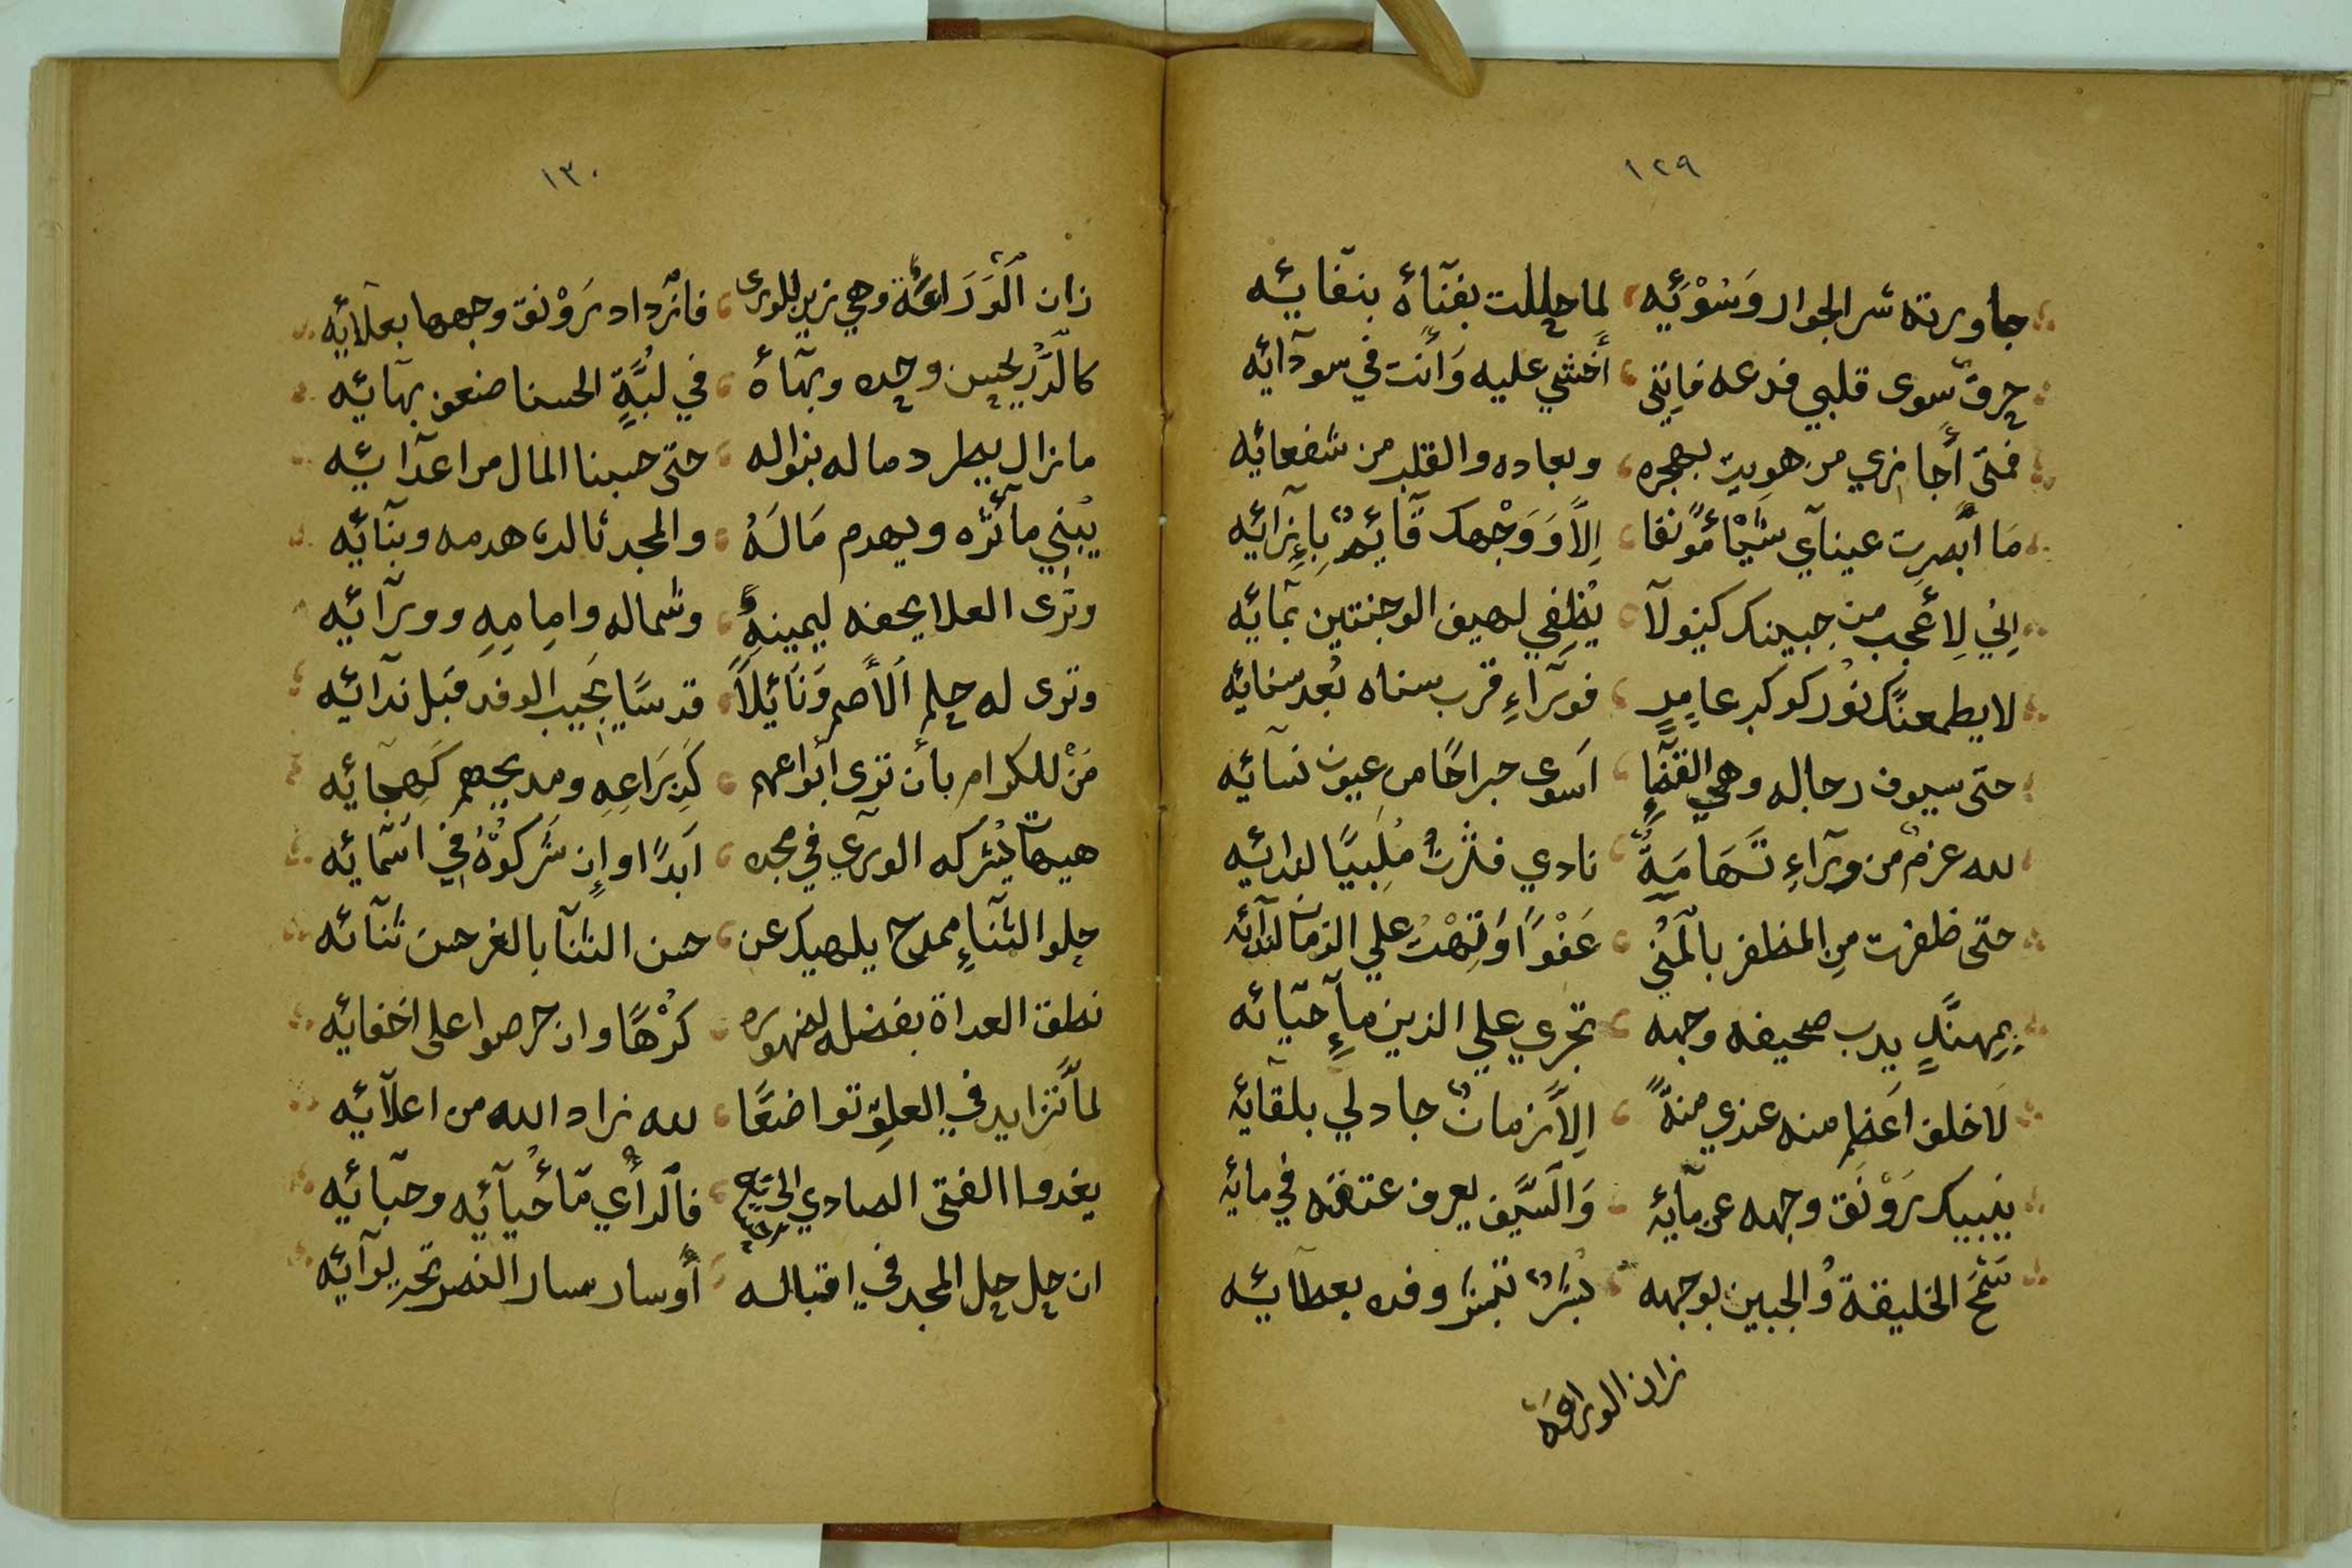 ١٢٩
جاورته شر الجوار وَسُوْئِه لما حللت بفنآئه بنقائه
حرق سوى قلبي فدعه فاِنني أخشي عليه وَأنت في سودآئه
فمتي أجازي من هويت بهجره وبعاده والقلب من شفعائه
مَا أبصرت عينآي شيًا مونقا اِلاَّ وَوَجْهك قآئِم بِاِزآئه
اِني لِأعجب من جبينك كيف لآ يُطفي لهيف الوجنتين بمآئه
لا يطمعنّك نُور كوكب عامِرٍ فورآءِ قرب سناه بُعد سنائه
حتى سيوف رجاله وهي القنا اَسوى جراحًا من عيون نسآئه
لله عزم من ورآءِ تَهَامَةٍ نادي فثرتُ مُلَبيًا لندائه
حتى ظفرت مِن المظفر بالمُني عَفْوًا وَتِهْتُ علي الزمان
بِمِهنَّدٍ يدب صحيفه وجهه تجري علي الذين مآءِ حيآئه
لَا خلف اَعظم منه عندي منةً اِلاَّ زمان جاد لي بلقآئه
ينبيك رَوْنَق وجهه عن مآئه وَالسَّيف يعرف عتقه في مائه
سَمْح الخليقة وُالجبين بوجهه بُشر تبشر وفده بعطآئه
زان الوراقة
١٣٠
زان الوَرَاعَة وهي زين للورى فازداد رَوْنق وجهها بعلآئه
كالدُّرِّ يحسن وحده وبهآءه في لَبَّةِ الحسنا ضعف بهآئه
ما زال يطرد ماله بنواله حتى حسبنا المال من اعدآئه
يُبني مآثره ويهدم مَالَهُ والمجد ثالث هدمه وبنآئه
وترى العلا يحفه ليمينهِ وشماله وامِامِهِ وورآئه
وترى له حلم الأصم وَنَائِلاً قد سًا يجيب الوفد قبل ندآئه
مَنْ للكرام بأن ترى أبواعهم كَذِرَاعِهِ ومديحهم كَهِجآئه
هيهآت يُشركه الوري في مجده اَبدًا واِن شَرَكوُهُ في اسمآئه
حلو الثنآءِ ممدح يلهيك عن حسن الثنآ بالغر حسن ثنآئه
نطق العداة بفضله لظهوره كُرْهًا وان حرصوا على اخفائه
لمآ تزايد في العلوِّ تواضعًا لله زاد الله من اعلآئه
يغدوا الفتى الصادي الى فالرأي مآ أحيآئه وحبآئه
ان حل حل المجد في اقباله أو سار سار النصر تحت لِوآئه